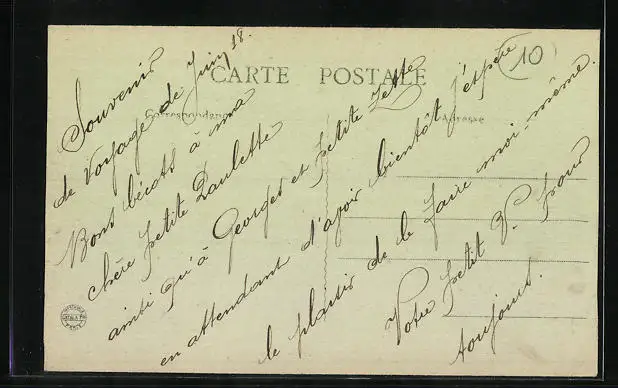 CARTE POSTALE
Correspondance
Adresse
10
Souvenir
de voyage de Juin 18.
Bons bécots à ma
chère petite Paulette
ainsi qu'à Georges et petite Zette
en attendant d'avoir bientôt j'espère
le plaisir de le faire moi-même.
Votre petit P. pour
toujours.